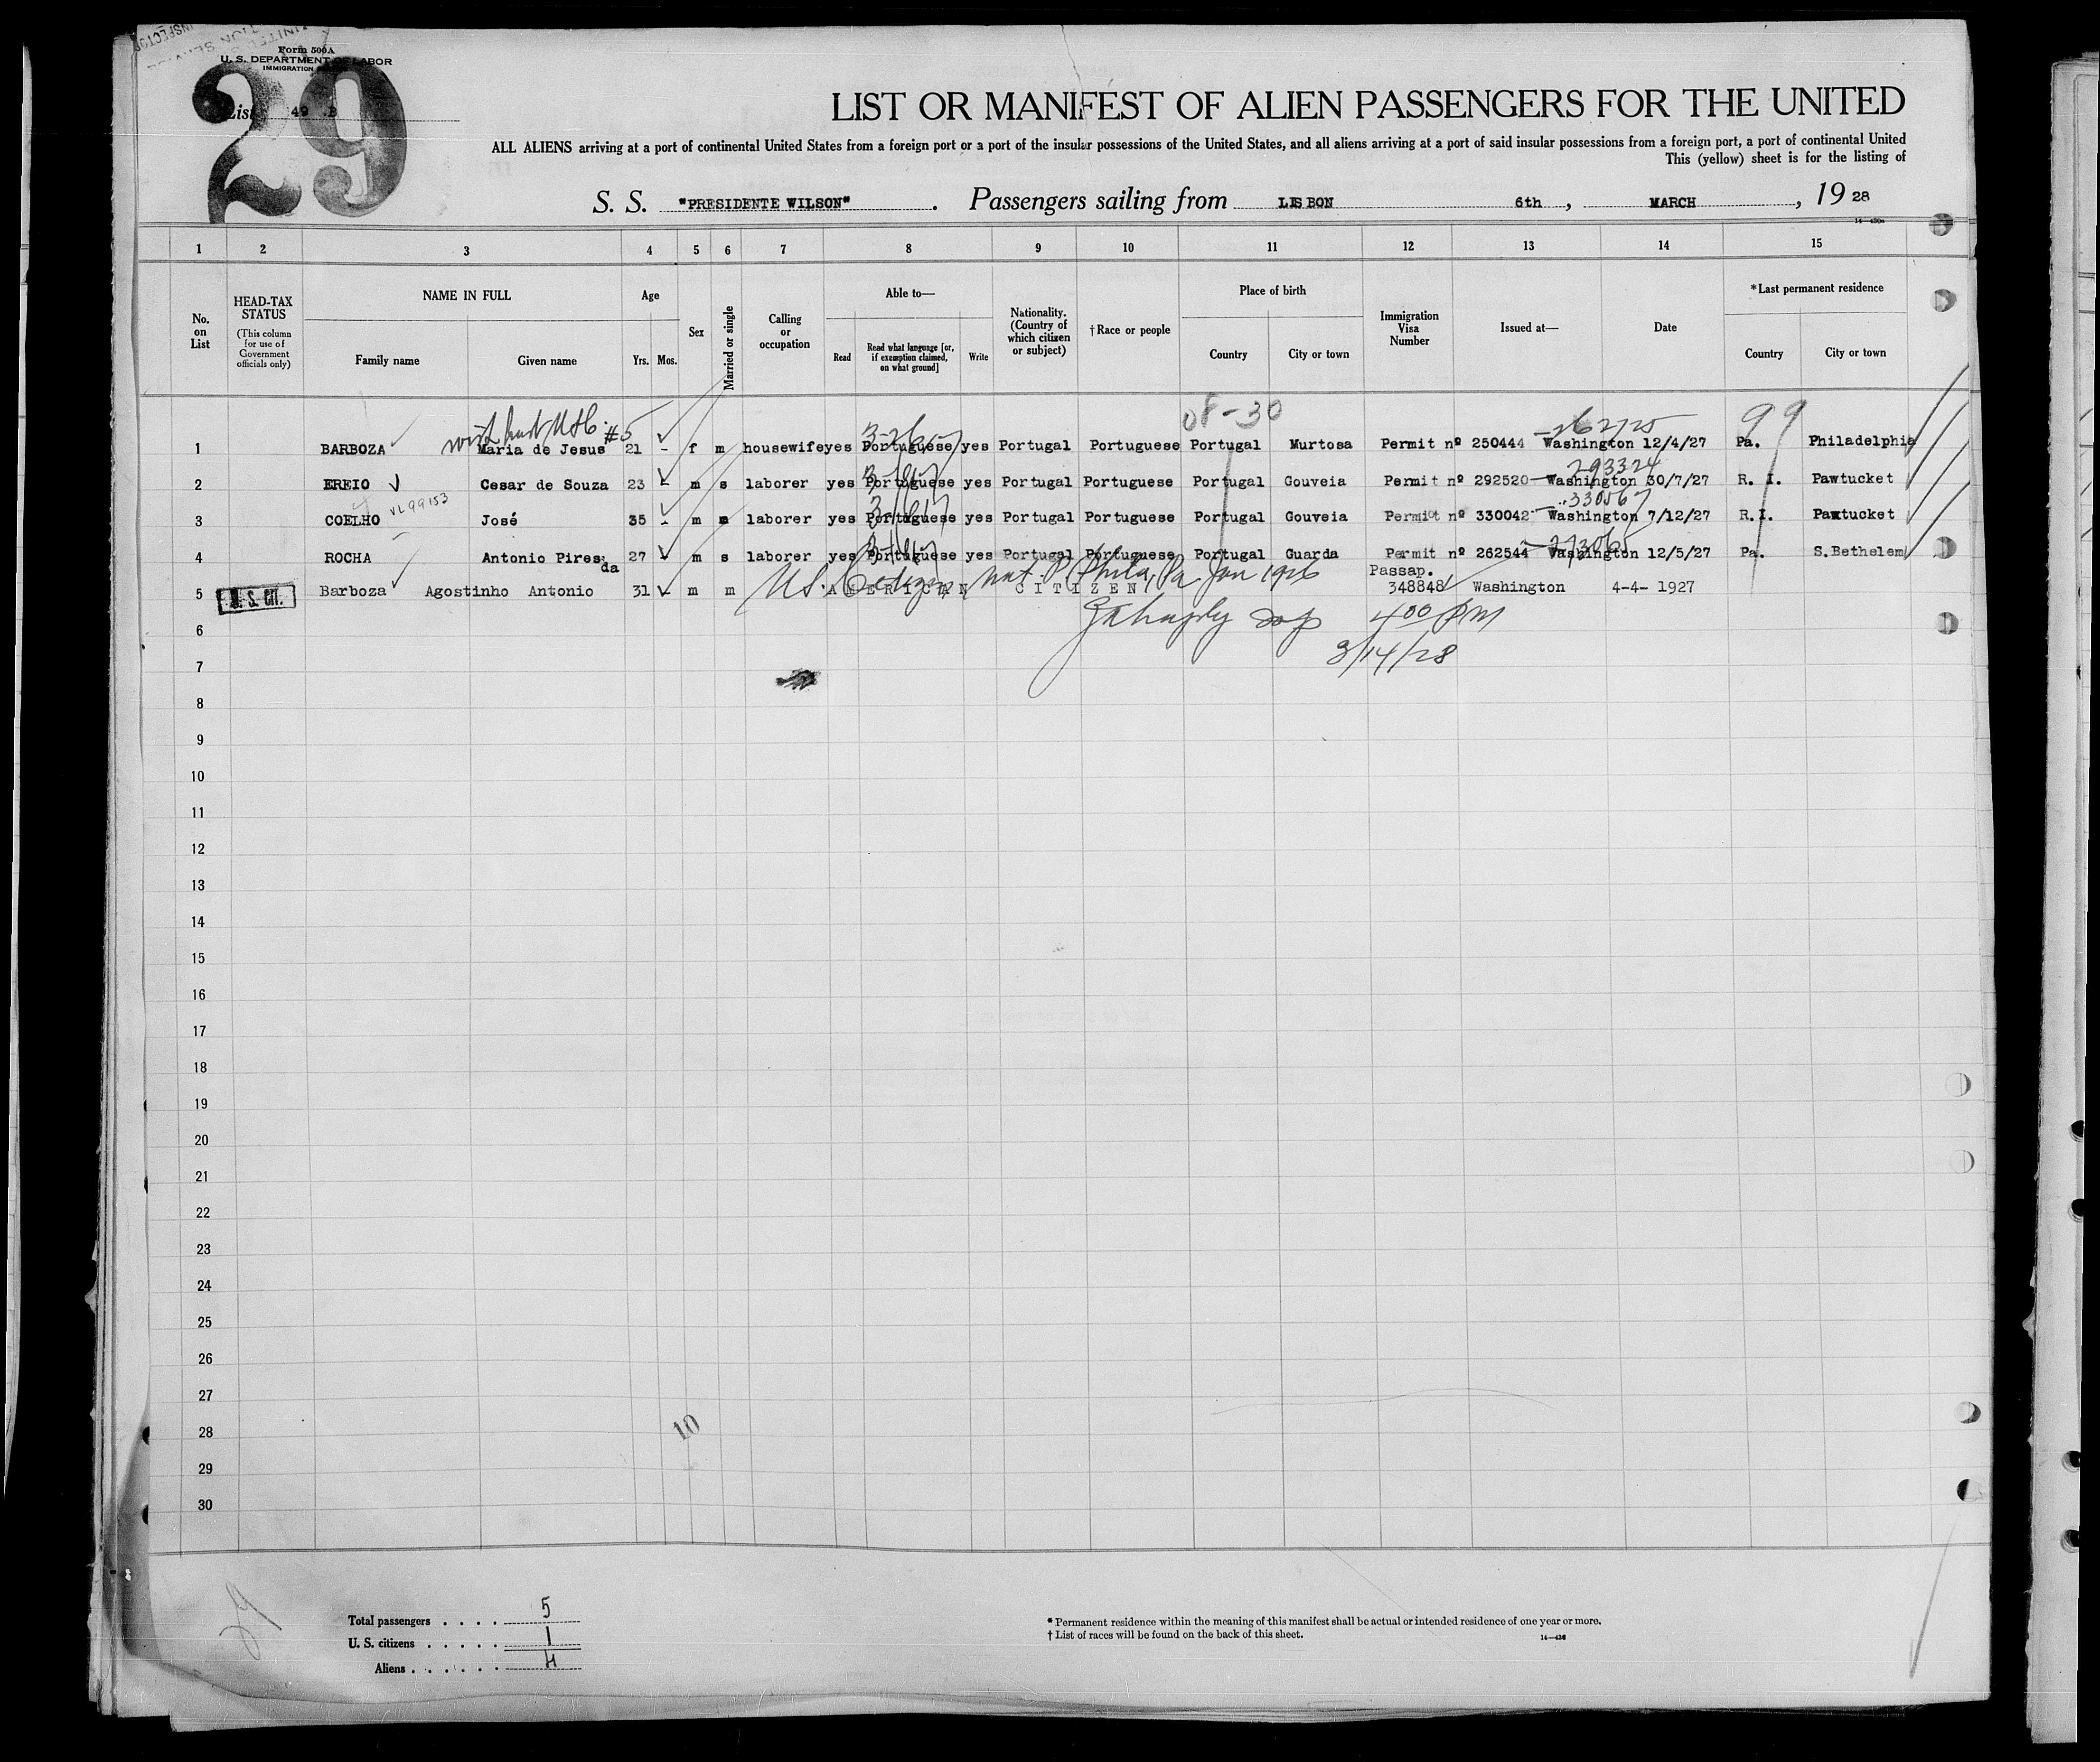 Form 500A
U. S. DEPARTMENT OF LABOR
IMMIGRATION
29
List 49 B
LIST OR MANIFEST OF ALIEN PASSENGERS FOR THE UNITED
ALL ALIENS arriving at a port of continental United States from a foreign port or a port of the insular possessions of the United States, and all aliens arriving at a port of said insular possessions from a foreign port, a port of continental United
This (yellow) sheet is for the listing of
S. S. "PRESIDENTE WILSON" . Passengers sailing from LISBON 6th , MARCH , 19 28
1 2 3 4 5 6 7 8 9 10 11 12 13 14 15
No. on List
HEAD-TAX STATUS
(This column for use of Government officials only)
NAME IN FULL
Family name Given name
Age
Yrs. Mos.
Sex
Married or single
Calling or occupation
Able to—
Read
Read what language [or, if exemption claimed, on what ground]
Write
Nationality. (Country of which citizen or subject)
†Race or people
Place of birth
Country City or town
Immigration Visa Number
Issued at—
Date
*Last permanent residence
Country City or town
08-30 99
#5
1 BARBOZA Maria de Jesus 21 - f m housewife yes Portuguese yes Portugal Portuguese Portugal Murtosa Permit nº 250444 Washington 12/4/27 Pa. Philadelphia
293324
2 EREIO Cesar de Souza 23 - m s laborer yes Portuguese yes Portugal Portuguese Portugal Gouveia Permit nº 292520 Washington 30/7/27 R. I. Pawtucket
VL 99153
330567
3 COELHO José 35 - m m laborer yes Portuguese yes Portugal Portuguese Portugal Gouveia Permit nº 330042 Washington 7/12/27 R.I. Pawtucket
4 ROCHA Antonio Pires da 27 - m s laborer yes Portuguese yes Portugal Portuguese Portugal Guarda Permit nº 262544 Washington 12/5/27 Pa. S.Bethelem
U.S. Citizen Phila, Pa Jan 1926
Passap.
5 U. S. CIT. Barboza Agostinho Antonio 31 - m m AMERICAN CITIZEN 348848 Washington 4-4- 1927
6 400 PM
7 3/14/28
8
9
10
11
12
13
14
15
16
17
18
19
20
21
22
23
24
25
26
27
28
10
29
30
Total passengers . . . . 5
U. S. citizens . . . . . 1
Aliens . . . . . . 4
* Permanent residence within the meaning of this manifest shall be actual or intended residence of one year or more.
† List of races will be found on the back of this sheet.
14—430